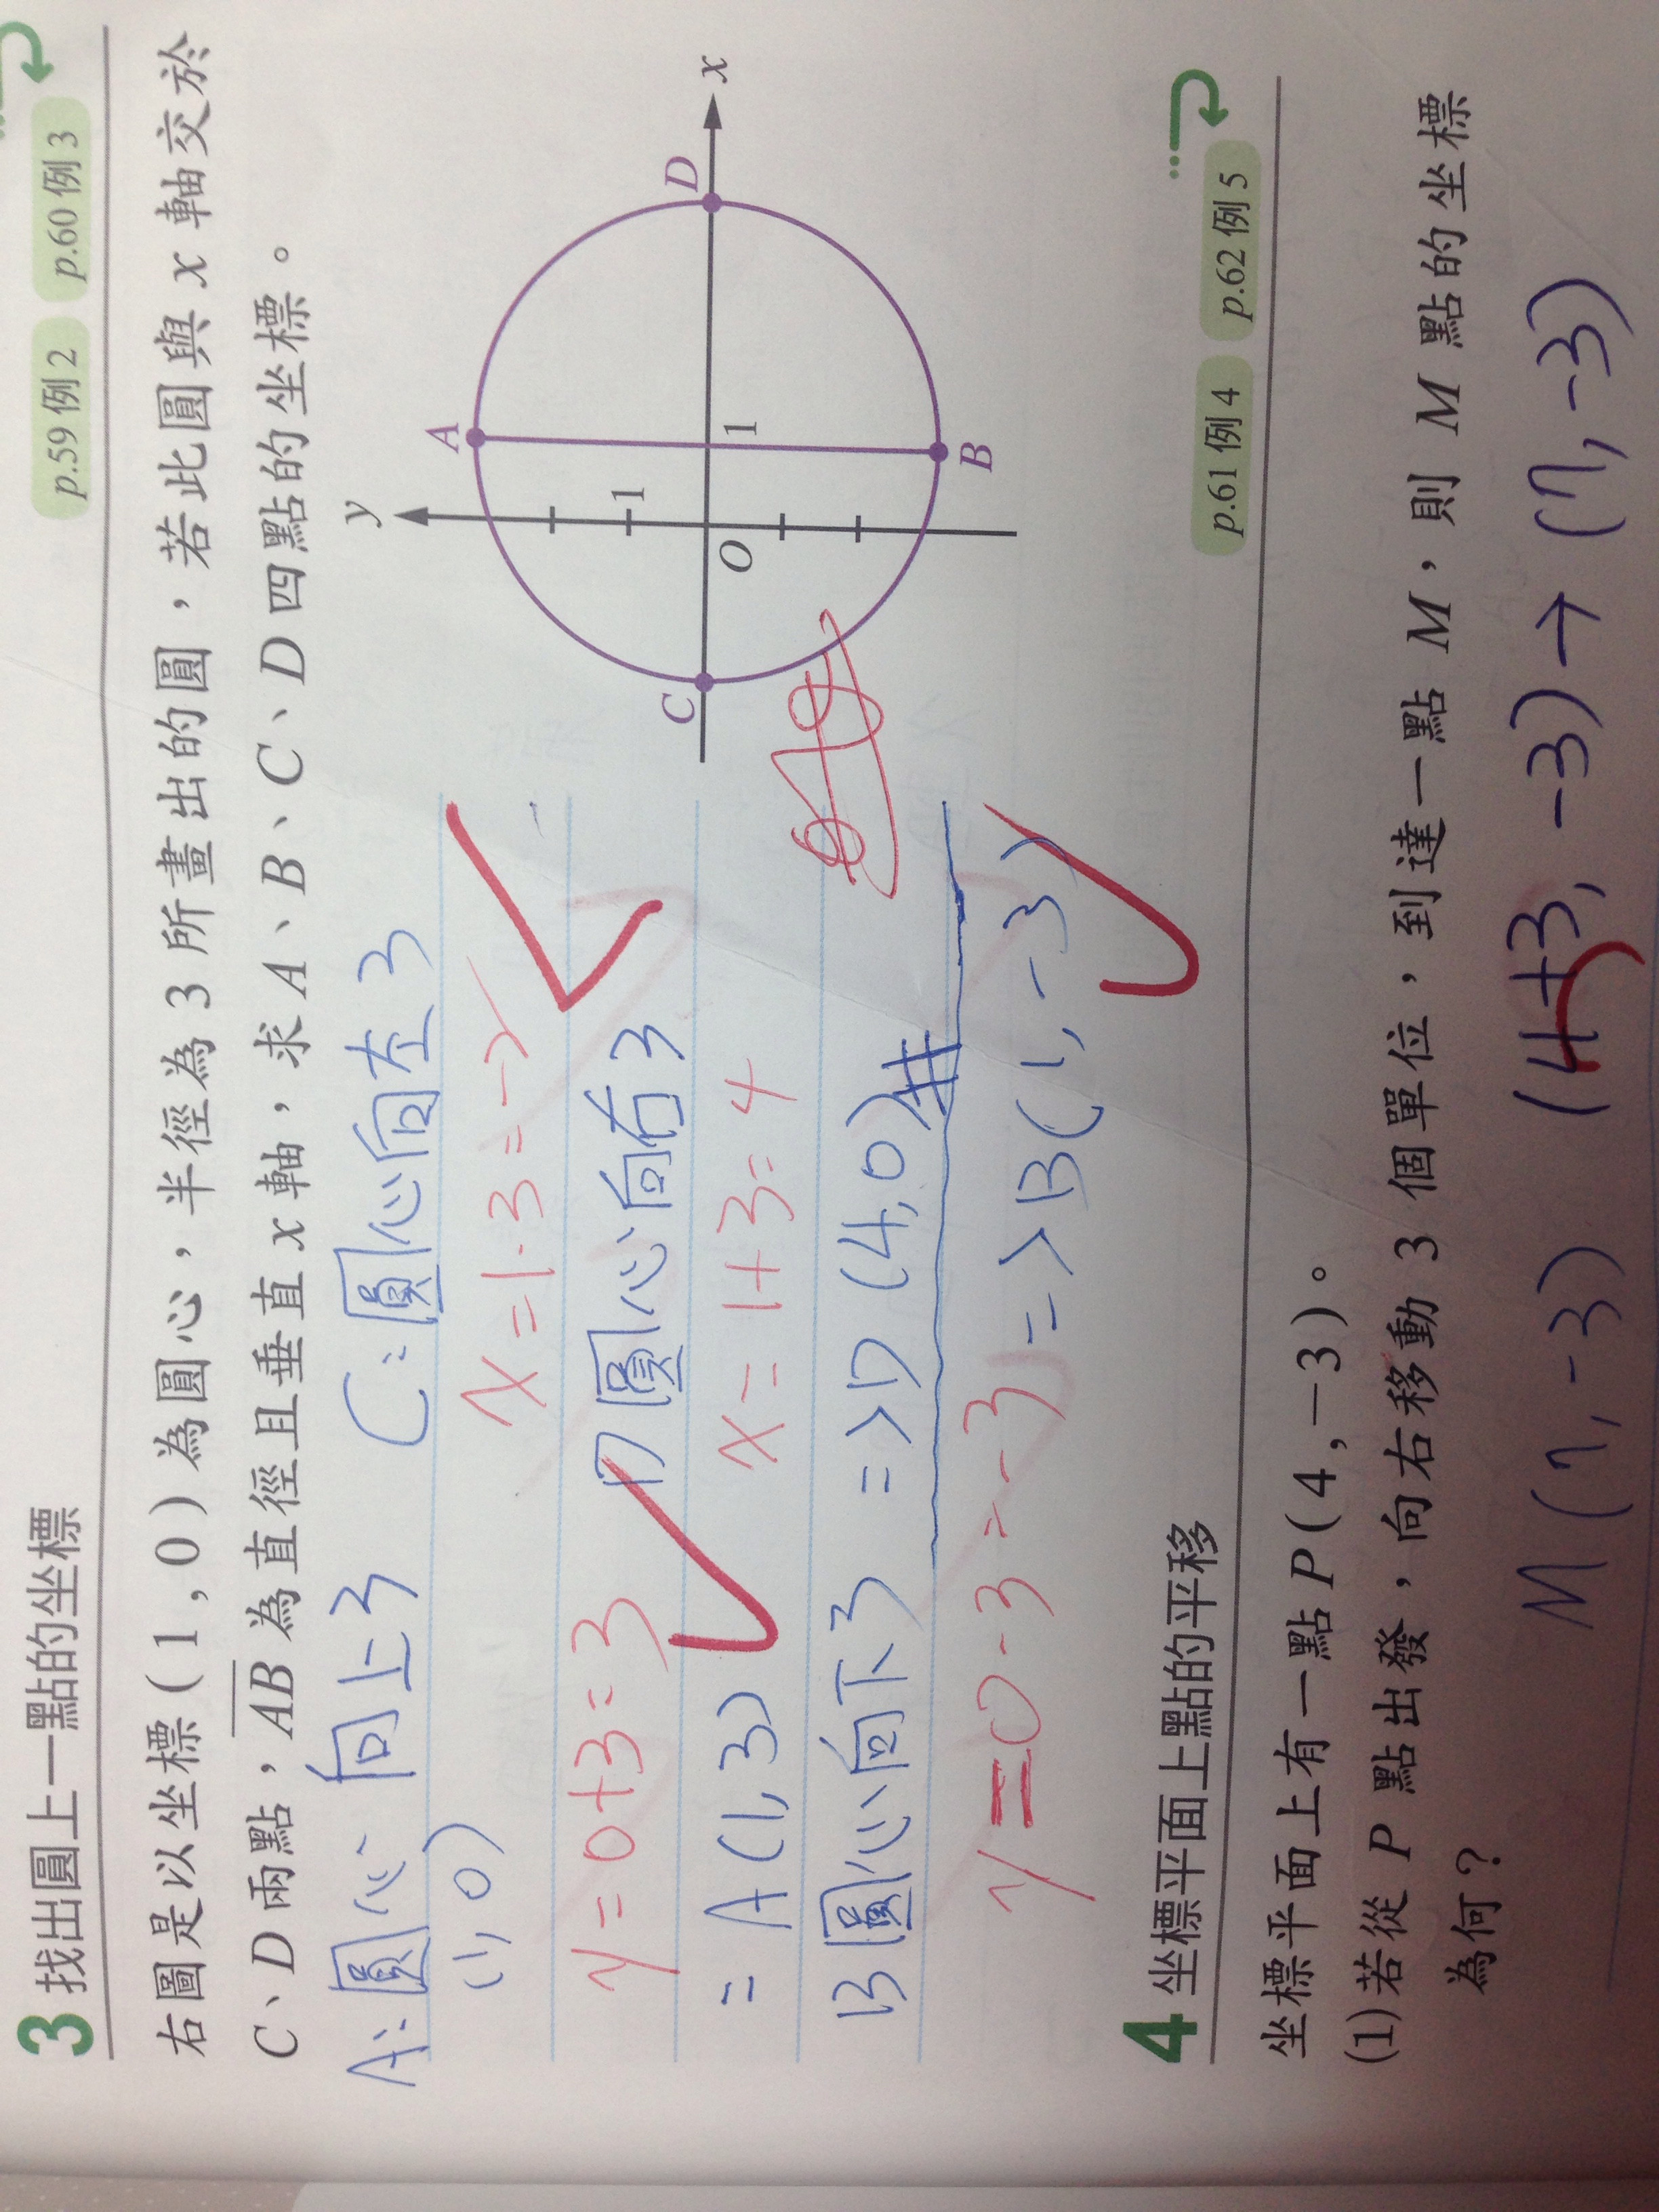 3 找出圓上一點的坐標
p.59 例 2 p.60 例 3
右圖是以坐標(1,0)為圓心，半徑為 3 所畫出的圓，若此圓與 x 軸交於
C、D 兩點，AB 為直徑且垂直 x 軸，求 A、B、C、D 四點的坐標。
A:圓心 向上3 C:圓心向左3
(1,0)
x=1-3=-2
y=0+3=3 D圓心向右3
=A(1,3) x=1+3=4
B圓心向下3 =>D(4,0)#
y=0-3=-3 =>B(1,-3)
y
A
1
C
D
x
O
1
B
4 坐標平面上點的平移
p.61 例 4 p.62 例 5
坐標平面上有一點 P(4,-3)。
(1)若從 P 點出發，向右移動 3 個單位，到達一點 M，則 M 點的坐標
為何？
M(7,-3) (4+3,-3)→(7,-3)